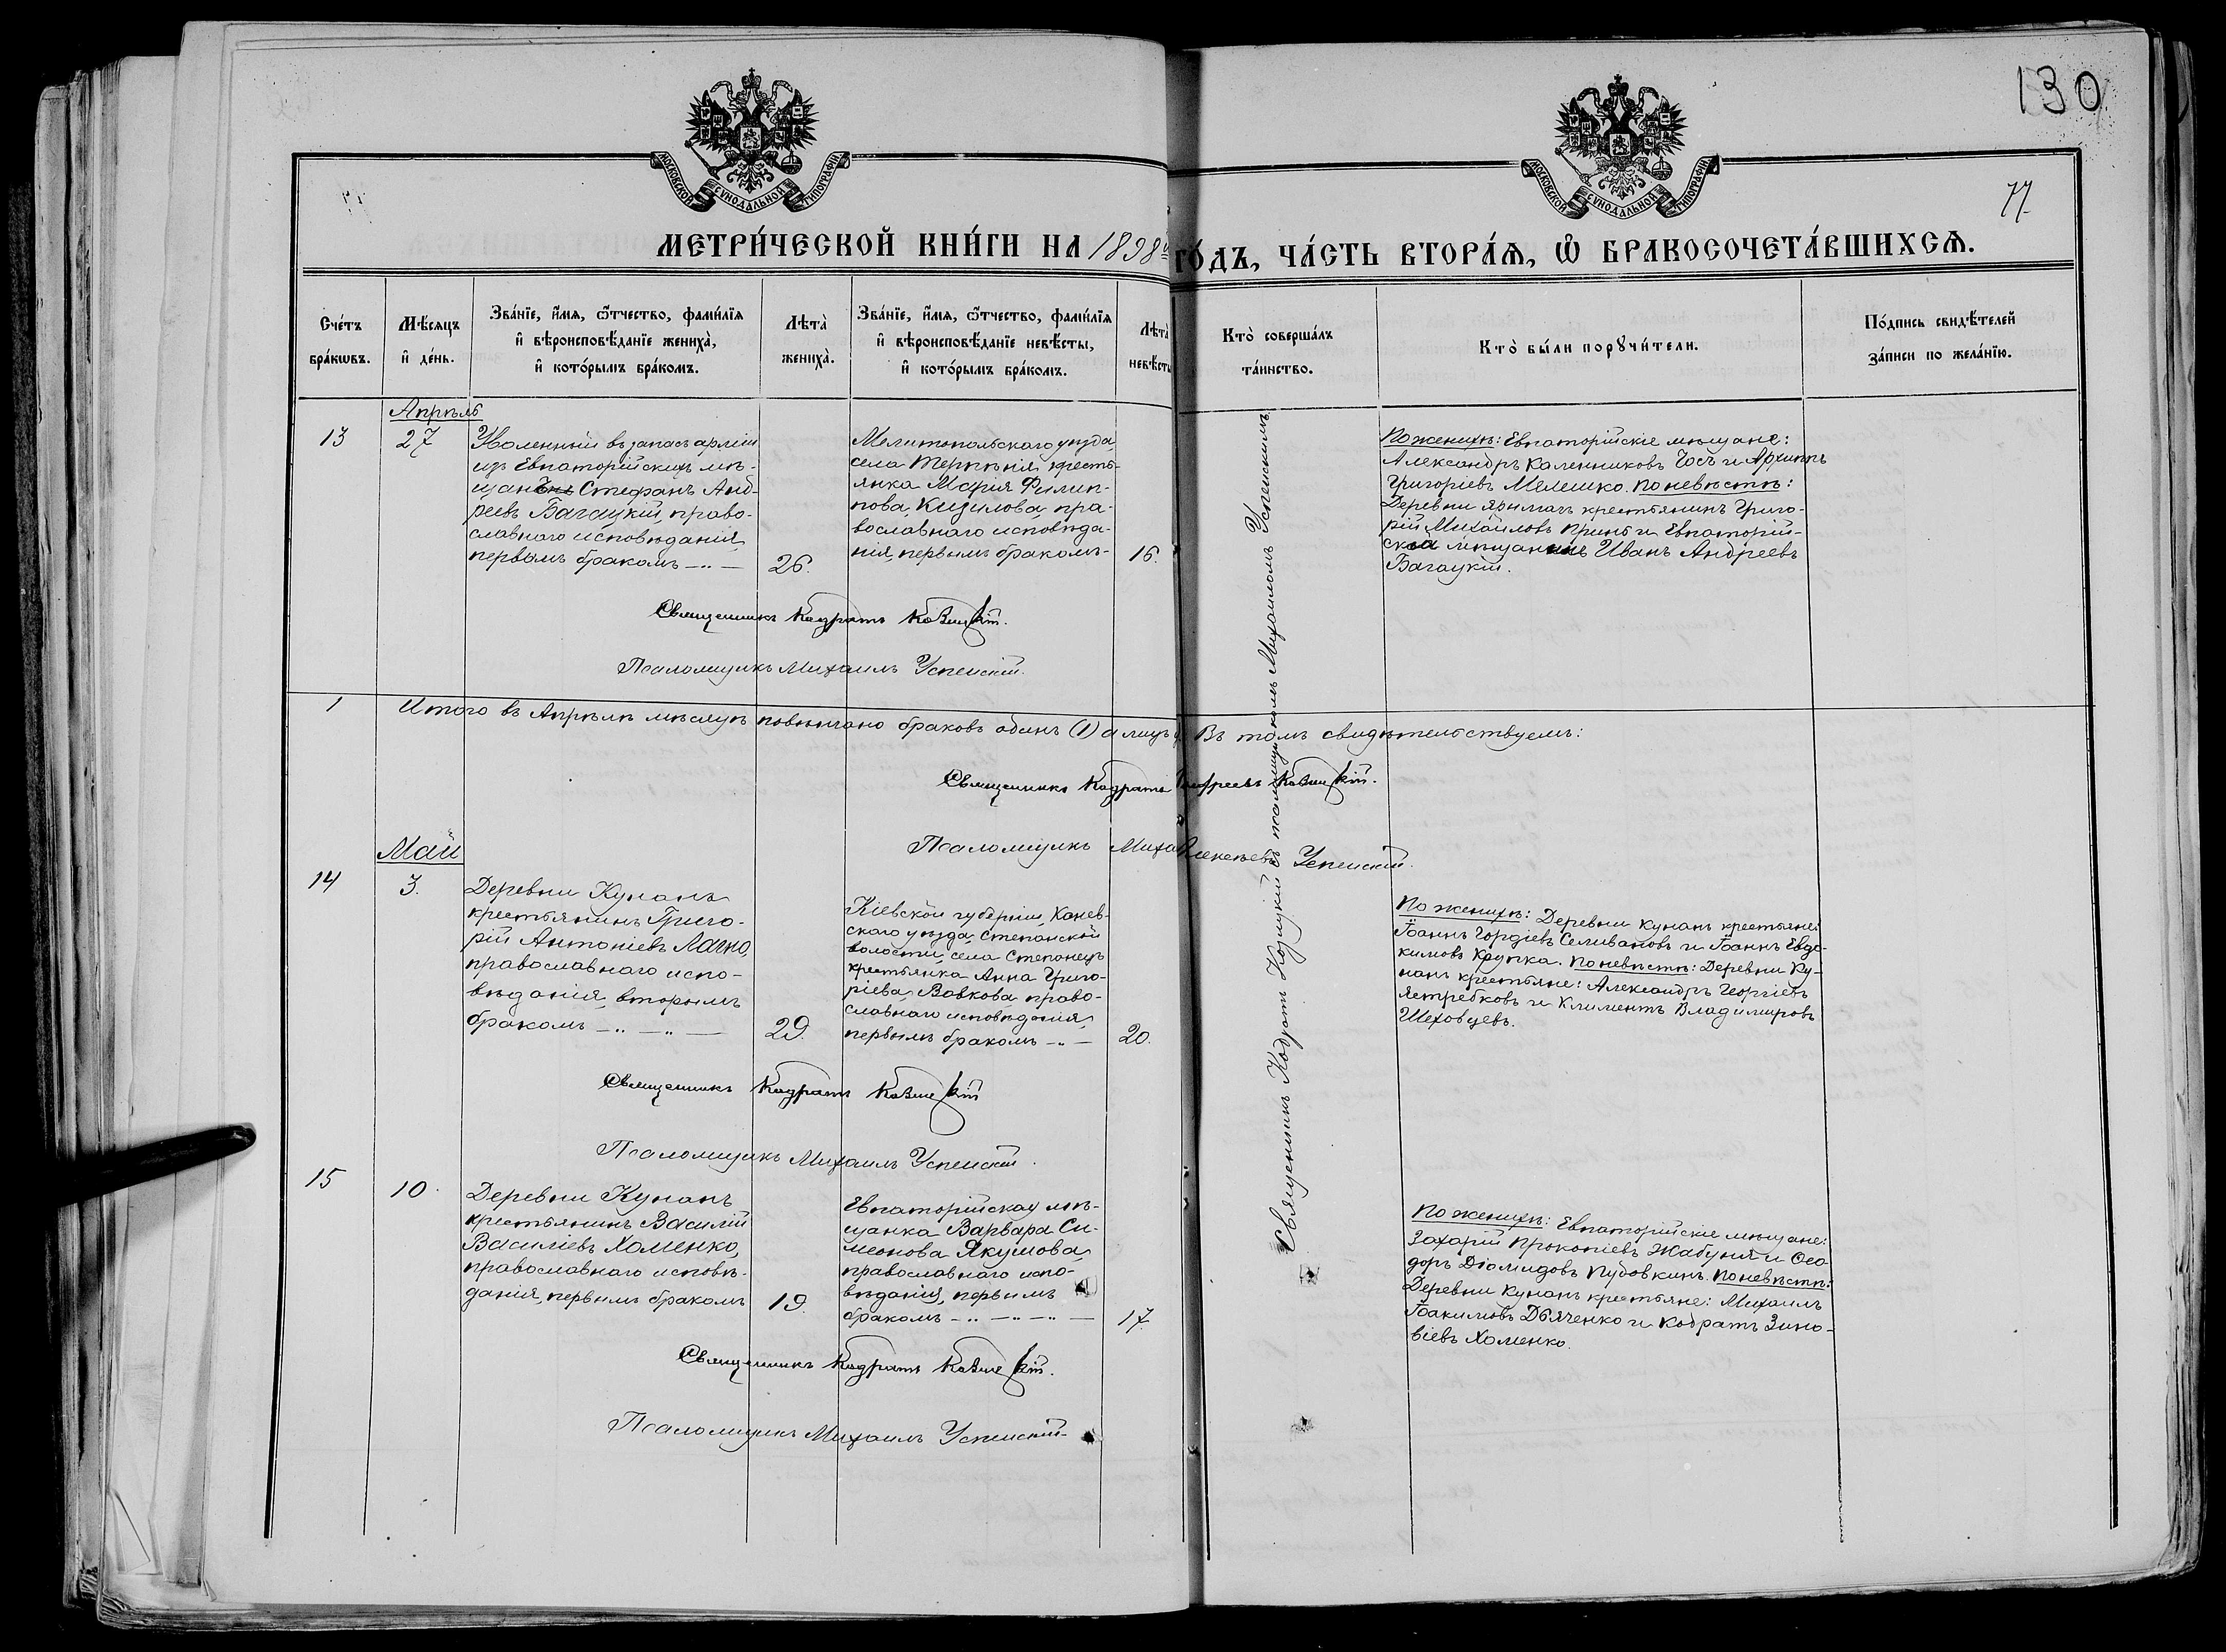 130
77
МОСКОВСКОЙ СУНОДАЛЬНОЙ ТИПОГРАФІИ
МОСКОВСКОЙ СУНОДАЛЬНОЙ ТИПОГРАФІИ
МЕТРИ́ЧЕСКОЙ КНИ́ГИ НА 1898й ГО́ДЪ, ЧА́СТЬ ВТОРА́Ѧ, Ѽ БРАКОСОЧЕТА́ВШИХСѦ.
Сче́тъ бра́кѡвъ.
Мѣ́сяцъ и҆ де́нь.
Зва́нїе, и҆́мя, ѻ҆́тчество, фами́лїя и҆ вѣроисповѣ́данїе жениха̀, и҆ кото́рымъ бра́комъ.
Лѣта̀ жениха̀.
Зва́нїе, и҆́мя, ѻ҆́тчество, фами́лїя и҆ вѣроисповѣ́данїе невѣ́сты, и҆ кото́рымъ бра́комъ.
Лѣта̀ невѣ́сты
Кто̀ соверша́лъ та́инство.
Кто̀ бы́ли порꙋчи́тели.
По́дпись свидѣ́телей за́писи по жела́нїю.
Апрѣль
13
27
Уволенный въ запасъ арміи
изъ Евпаторійскихъ мѣ-
щанъ Стефанъ Анд-
реевъ Багацкій, право-
славнаго исповѣданія,
первымъ бракомъ
26.
Мелитопольскаго уѣзда,
села Терпѣнія кресть-
янка Марія Филип-
пова, Кизилова, пра-
вославнаго исповѣда-
нія, первымъ бракомъ
16.
По женихѣ: Евпаторійскіе мѣщане:
Александръ Каленниковъ и Архиппъ
Григоріевъ Мелешко. По невѣстѣ:
Деревни крестьянинъ Григо-
рій Михайловъ и Евпаторій-
скій мѣщанинъ Иванъ Андреевъ
Багацкій.
Священникъ Кодратъ
Псаломщикъ Михаилъ Успенскій.
1
Итого въ Апрѣлѣ мѣсяцѣ повѣнчано браковъ одинъ (1) а лицъ Въ томъ свидѣтельствуемъ:
Священникъ Кодратъ
Псаломщикъ Миха Алексѣевъ Успенскій.
Священникъ Кодратъ съ псаломщикомъ Михаиломъ Успенскимъ
Май
14
3.
Деревни Кунанъ
крестьянинъ Григо-
рій Антоніевъ Лагно,
православнаго испо-
вѣданія, вторымъ
бракомъ
29.
Кіевской губерніи, Канев-
скаго уѣзда, Степанской
волости, села Степанецъ
крестьянка Анна Григо-
ріева, Вовкова, право-
славнаго исповѣданія,
первымъ бракомъ
20.
По женихѣ: Деревни Кунанъ крестьяне:
Іоаннъ Гордіевъ Селивановъ и Іоаннъ Евдо-
кимовъ Крупка. По невѣстѣ: Деревни Ку-
нанъ крестьяне: Александръ Георгіевъ
Ястребковъ и Климентъ Владиміровъ
Шеховцевъ.
Священникъ Кодратъ
Псаломщикъ Михаилъ Успенскій.
15
10.
Деревни Кунанъ
крестьянинъ Василій
Василіевъ Хоменко,
православнаго исповѣ-
данія, первымъ бракомъ
19.
Евпаторійская мѣ-
щанка Варвара Си-
меонова Якушова,
православнаго испо-
вѣданія, первымъ
бракомъ
17.
По женихѣ: Евпаторійскіе мѣщане:
Захарій Прокопіевъ Жабуня и Ѳео-
доръ Діомидовъ Пудовкинъ. По невѣстѣ:
Деревни Кунанъ крестьяне: Михаилъ
Іоакимовъ Дьяченко и Кодратъ Зино-
віевъ Хоменко.
Священникъ Кодратъ
Псаломщикъ Михаилъ Успенскій.